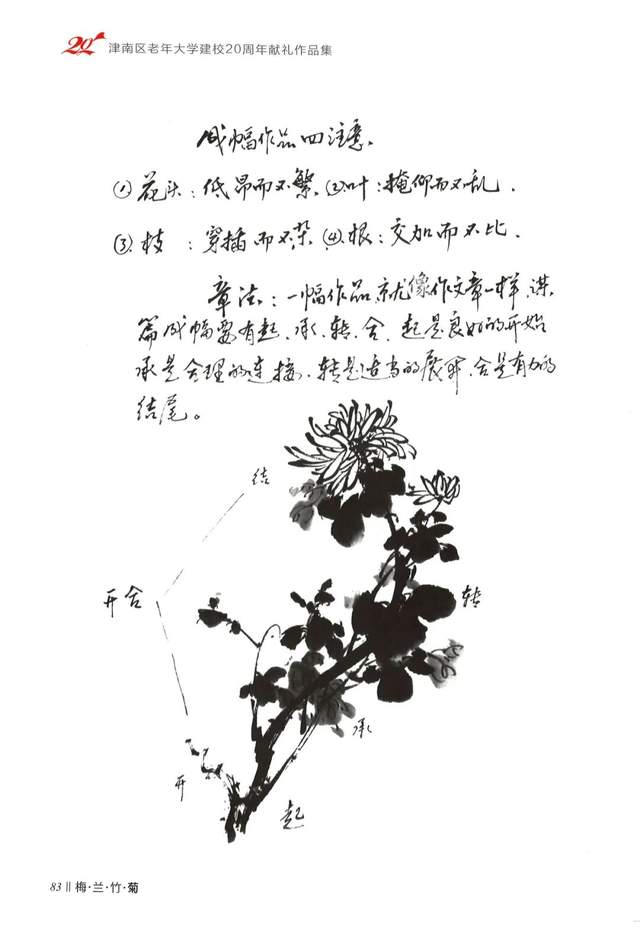 20 津南区老年大学建校20周年献礼作品集
成幅作品四注意、
①花头：低昂而不繁、②叶：掩仰而不乱．
③枝：穿插而不杂、④根：交加而不比．
章法：一幅作品、就像作文章一样、谋
篇成幅要有起、承、转、合、起是良好的开始
承是合理的连接、转是适当的展开、合是有力的
结尾。
结
开合
转
承
开
起
83 || 梅·兰·竹·菊